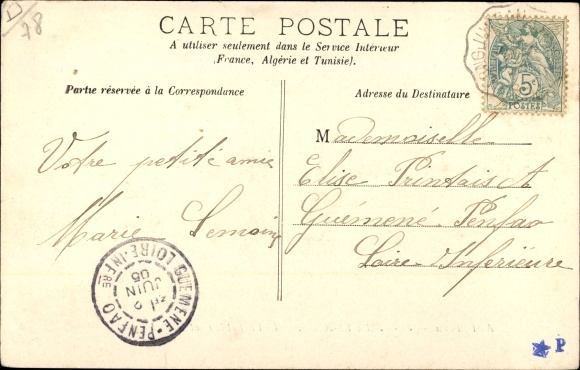 78
CARTE POSTALE
A utiliser seulement dans le Service Intérieur
(France, Algérie et Tunisie).
Partie réservée à la Correspondance
Adresse du Destinataire
5c
POSTES
Votre petite amie
Marie Lemoine
Mademoiselle
Elise Printais
Guémené-Penfao
Loire-Inférieure
GUÉMENÉ-PENFAO
LOIRE-INFRE
2
JUIN
05
P